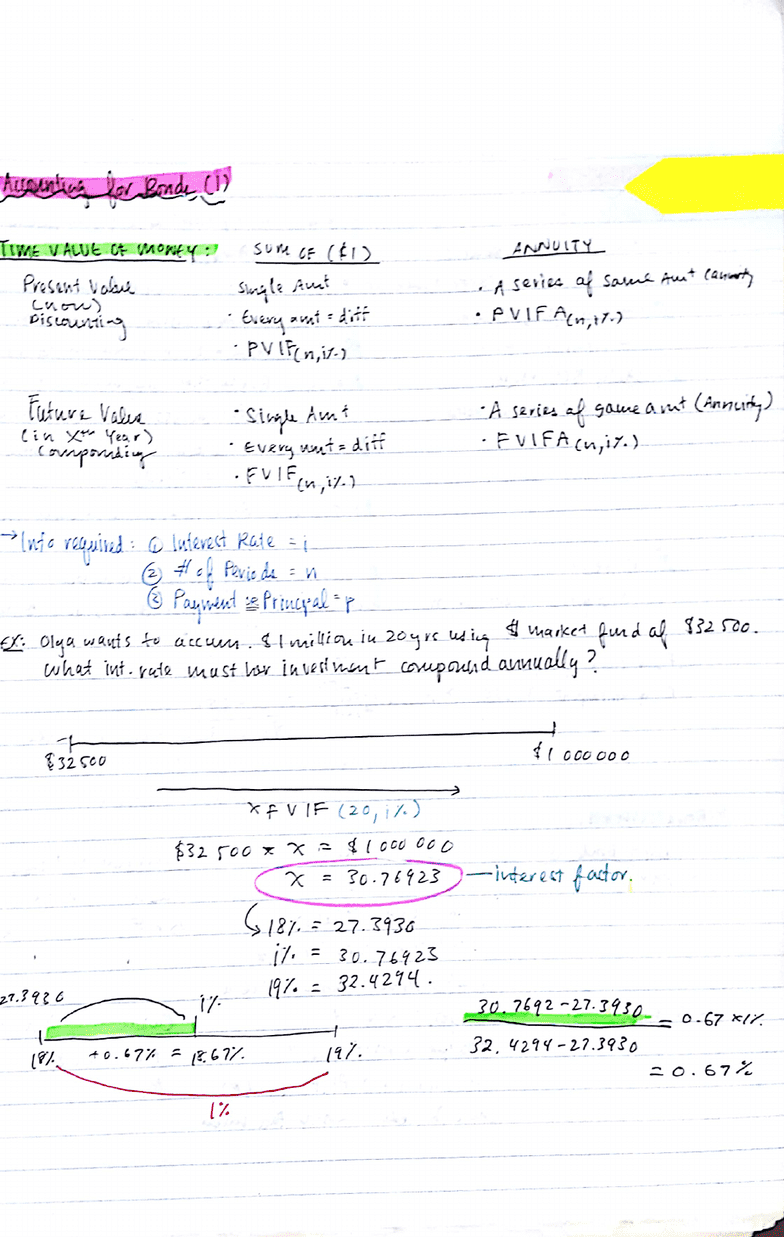 Accounting for Bonds (1)
TIME VALUE OF MONEY: SUM OF ($1) ANNUITY
Present Value Single Amt · A series of same Amt (annuity)
(now) · Every amt = diff · PVIFA(n,i%)
Discounting · PVIF(n,i%)
Future Value · Single Amt · A series of same amt (Annuity)
(in Xth Year) · Every amt = diff · FVIFA(n,i%)
Compounding · FVIF(n,i%)
→ Info required: ① Interest Rate = i
② # of Periods = n
③ Payment Principal = p
EX: Olga wants to accum. $1 million in 20 yrs using $ market fund of $32 500.
What int. rate must her investment compound annually?
$32 500 $1 000 000
x FVIF (20, i%)
$32 500 × x = $1 000 000
x = 30.76923 — interest factor.
18% = 27.3930
i% = 30.76923
19% = 32.4294.
27.3930 i% 30.7692-27.3930 = 0.67 ×1%
18% +0.67% = 18.67% 19% 32.4294-27.3930
= 0.67%
1%